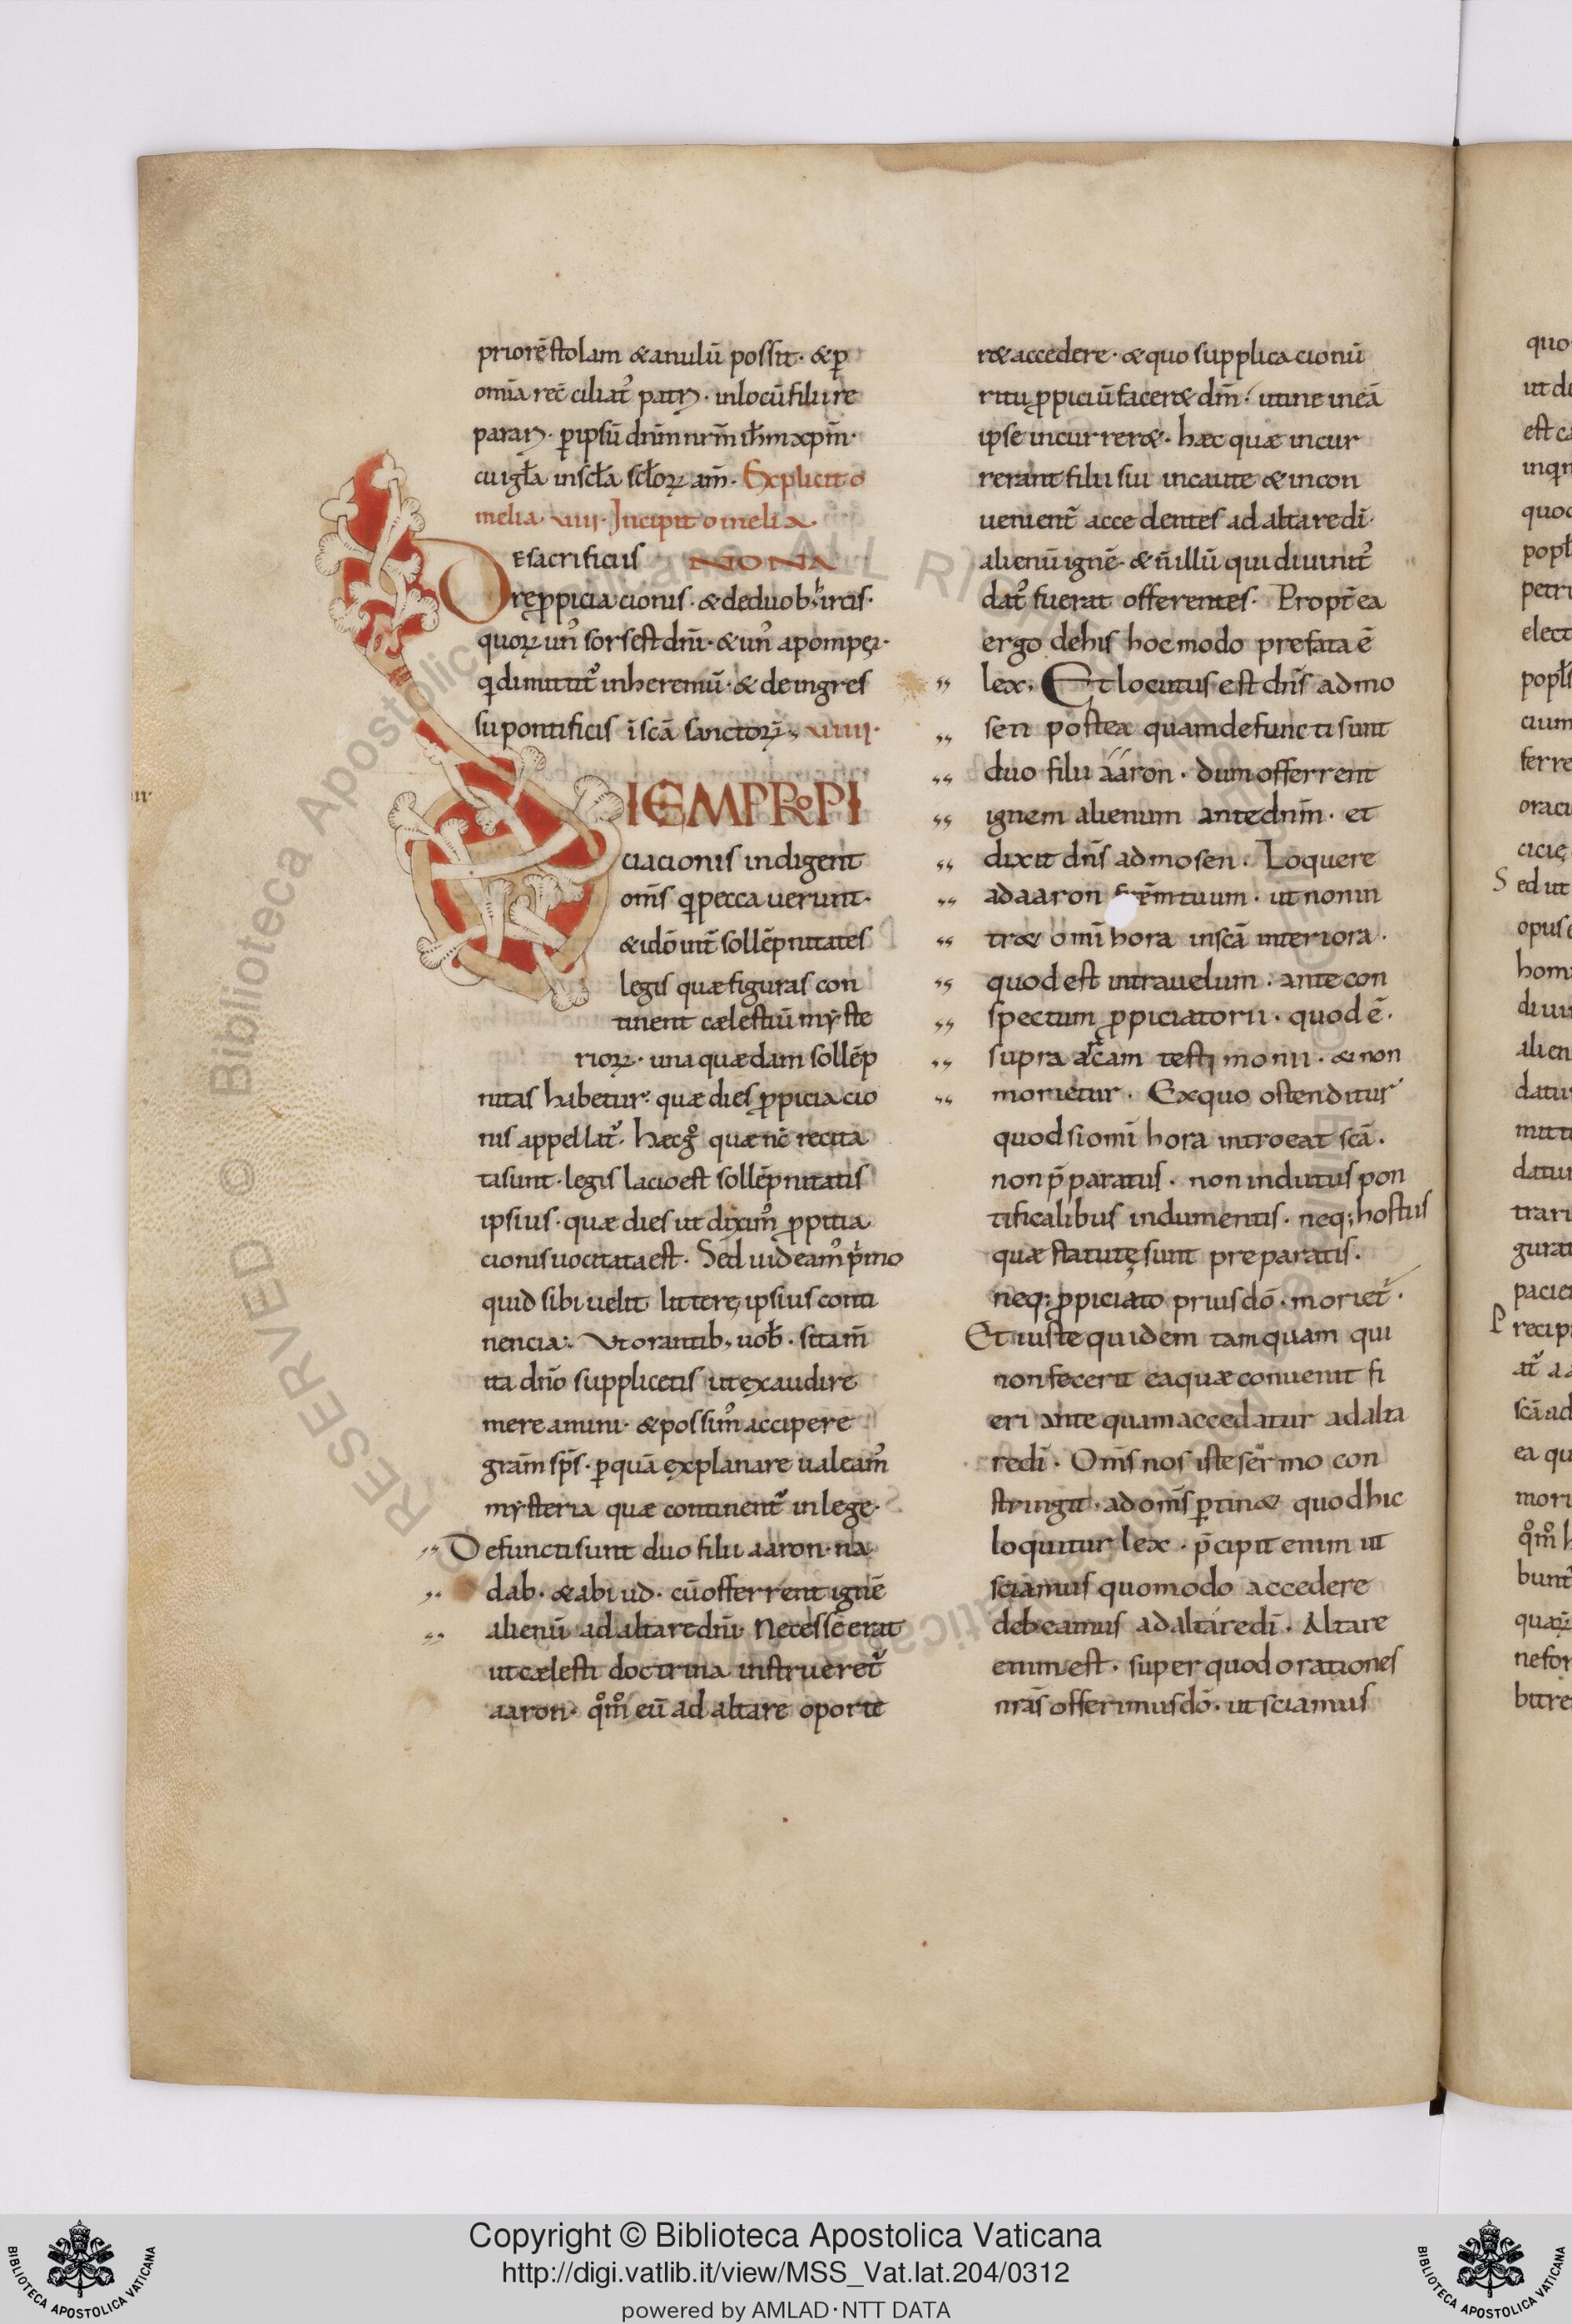 priorē stolam & anulū possit · & ꝑ
om̄ia rec̄ciliat᷒ patri · in locū filii re
parari · ꝑ ipsū dn̄m nrm̄ ih̄m xpm̄ ·
cui gƚa in scƚa scƚoꝝ am̄ · Explicit o
melia · viiii · Incipit omelia
De sacrificiis NONA
repꝓpiciacionis · & de duob; hircis ·
quoꝝ un᷒ sors est dn̄i · & un᷒ apompęi ·
q̇ dimittit᷒ in heremū · & de ingres
su pontificis ī scā sanctoꝝ · viiii ·
DIEM PROPI
ciacionis indigent
om̄s q̇ peccauerunt ·
& idō int̄ sollēpnitates
legis quæ figuras con
tinent cælestiū myste
rioꝝ · una quædam sollēp
nitas habetur · quæ dies ꝓpiciacio
nis appellat᷒ · hæc g̊ quæ nc̄ recita
ta sunt · legis lacio est sollēpnitatis
ipsius · quæ dies ut dixim᷒ ꝓpitia
cionis uocitata est · Sed uideam᷒ pⁱmo
quid sibi uelit litterę ipsius conti
nencia · Vt orantib; uob̄ · sitam̄
ita dn̄o supplicetis ut exaudire
mereamini · & possim᷒ accipere
gram̄ sps̄ · ꝑ quā explanare ualeam᷒
mysteria quæ continent᷒ in lege ·
,, Defuncti sunt duo filii aaron · na
,, dab · & abiud · cū offerrent ignē
,, alienū ad altare dn̄i · Necesse erat
ut cælesti doctrina instrueret᷒
aaron · qm̊᷒ eū ad altare oporte
r& accedere · & quo supplicacionū
ritu ꝓpiciū facer& dm̄ · ut ne in eā
ipse incurrer& · hæc quæ incur
rerant filii sui incaute & incon
uenient̄ accedentes ad altare dī ·
alienū ignē · & n̄ illū qui diuinit᷒
dat᷒ fuerat offerentes · Propt̄ea
ergo de his hoc modo prefata ē
,, lex · Et locutus est dn̄s ad mo
,, sen postea quam defuncti sunt
,, duo filii aaron · dum offerrent
,, ignem alienum ante dnm̄ · et
,, dixit dn̄s ad mosen · Loquere
,, ad aaron frēm tuum · ut non in
,, tr& omī hora in scā interiora ·
,, quod est intra uelum · ante con
,, spectum ꝓpiciatorii · quod ē ·
,, supra arcam testimonii · & non
,, morietur · Ex quo ostenditur
quod si omī hora introeat scā ·
non p̄paratus · non indutus pon
tificalibus indumentis · neq; hostiis
quæ statutę sunt preparatis ·
neq; ꝓpiciato prius dō · moriet᷒ ·
Et iuste quidem tamquam qui
non fecerit ea quæ conuenit fi
eri ante quam accedatur ad alta
re dī · Om̄s nos iste sermo con
stringit · ad om̄s ꝑtin& quod hic
loquitur lex · p̄cipit enim ut
sciamus quomodo accedere
debeamus ad altare dī · Altare
enim est · super quod orationes
nrās offerimus dō · ut sciamus
Copyright © Biblioteca Apostolica Vaticana
http://digi.vatlib.it/view/MSS_Vat.lat.204/0312
powered by AMLAD·NTT DATA
BIBLIOTECA APOSTOLICA VATICANA
BIBLIOTECA APOSTOLICA VATICANA